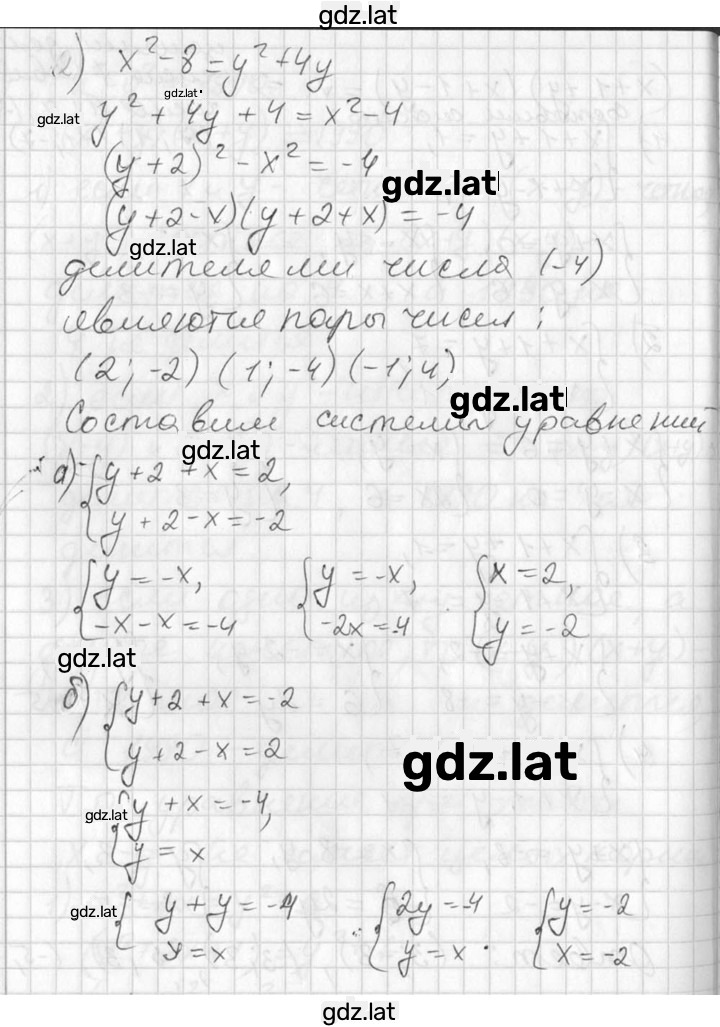 gdz.lat
2) x² - 8 = y² + 4y
gdz.lat
gdz.lat y² + 4y + 4 = x² - 4
(y + 2)² - x² = -4
gdz.lat
(y + 2 - x)(y + 2 + x) = -4
gdz.lat
делителями числа (-4)
являются пары чисел:
(2; -2) (1; -4) (-1; 4)
gdz.lat
Составим системы уравнений
gdz.lat
а) { y + 2 + x = 2,
y + 2 - x = -2
{ y = -x, { y = -x, { x = 2,
-x - x = -4 -2x = -4 y = -2
gdz.lat
б) { y + 2 + x = -2
y + 2 - x = 2
gdz.lat
gdz.lat { y + x = -4,
y = x
gdz.lat { y + y = -4 { 2y = -4 { y = -2
y = x y = x x = -2
gdz.lat